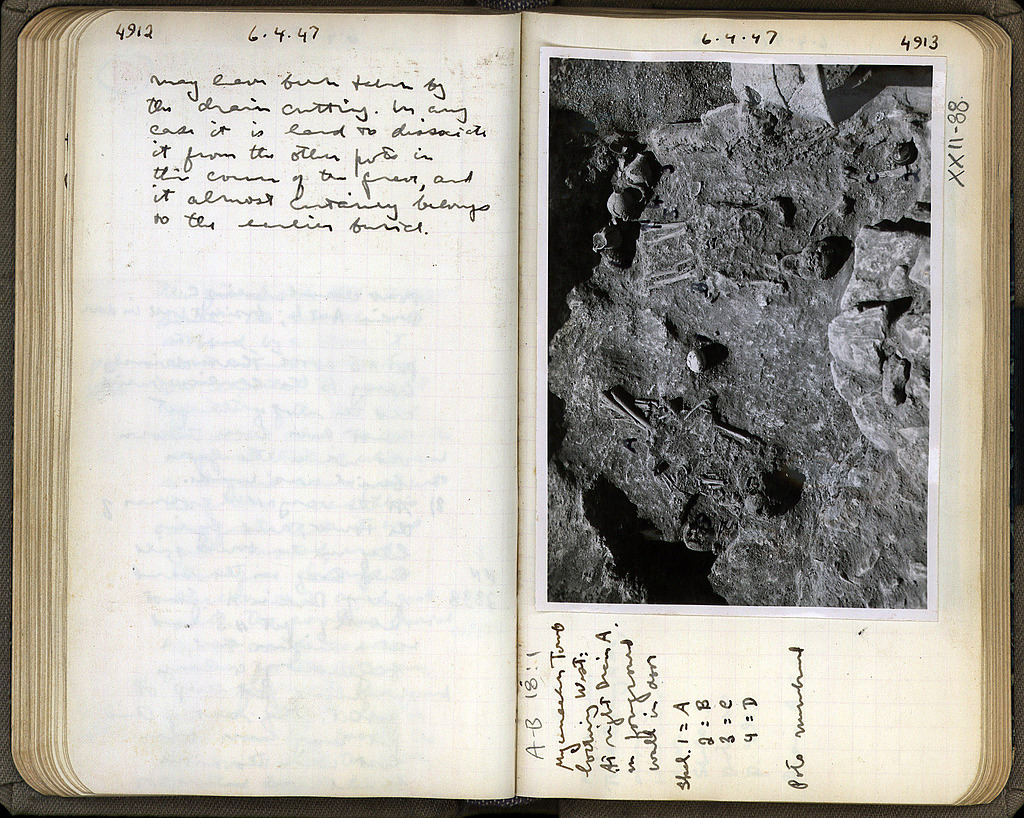 4912
6.4.47
may have been taken by
the drain cutting. In any
case it is hard to dissociate
it from the other pots in
this corner of the grave, and
it almost certainly belongs
to the earlier burial.
6.4.47
4913
XXII-88.
A-B 18:1
Mycenaean Tomb
looking West:
At right Drain A.
in foreground
wall in door
Skel. 1 = A
2 = B
3 = C
4 = D
Pots numbered